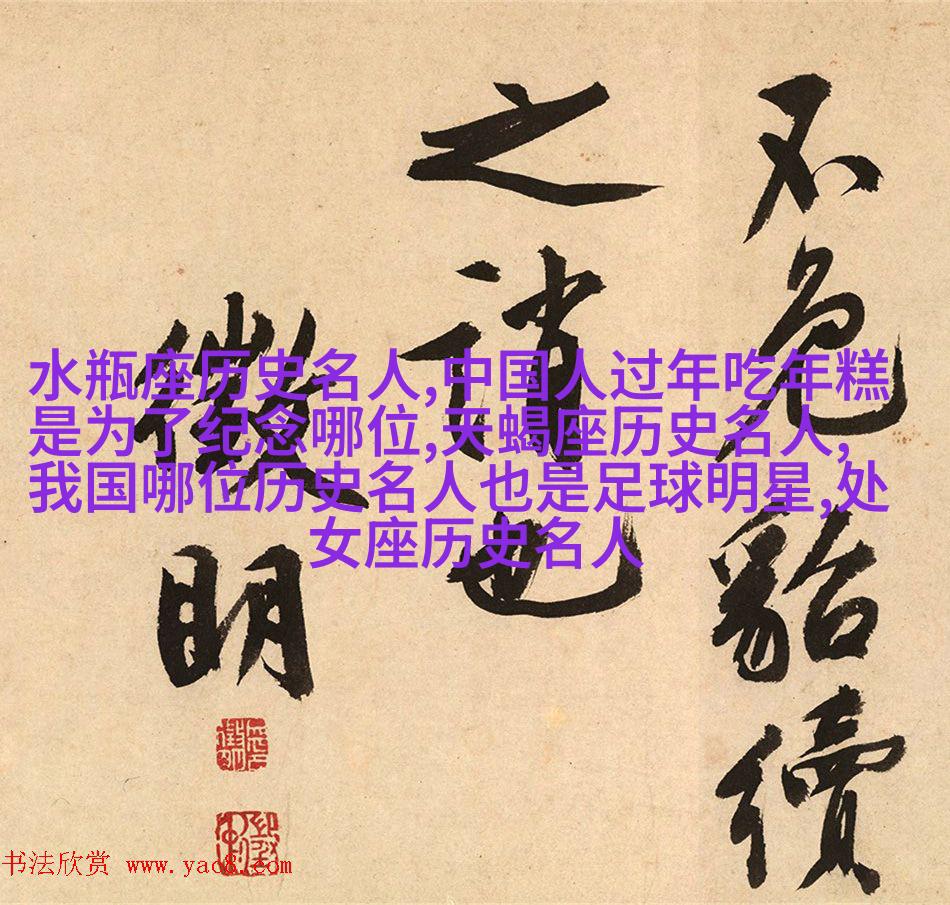 不免貂續
之誚也
徵明
水瓶座历史名人,中国人过年吃年糕
是为了纪念哪位,天蝎座历史名人,
我国哪位历史名人也是足球明星,处
女座历史名人
书法欣赏 www.yac8.com